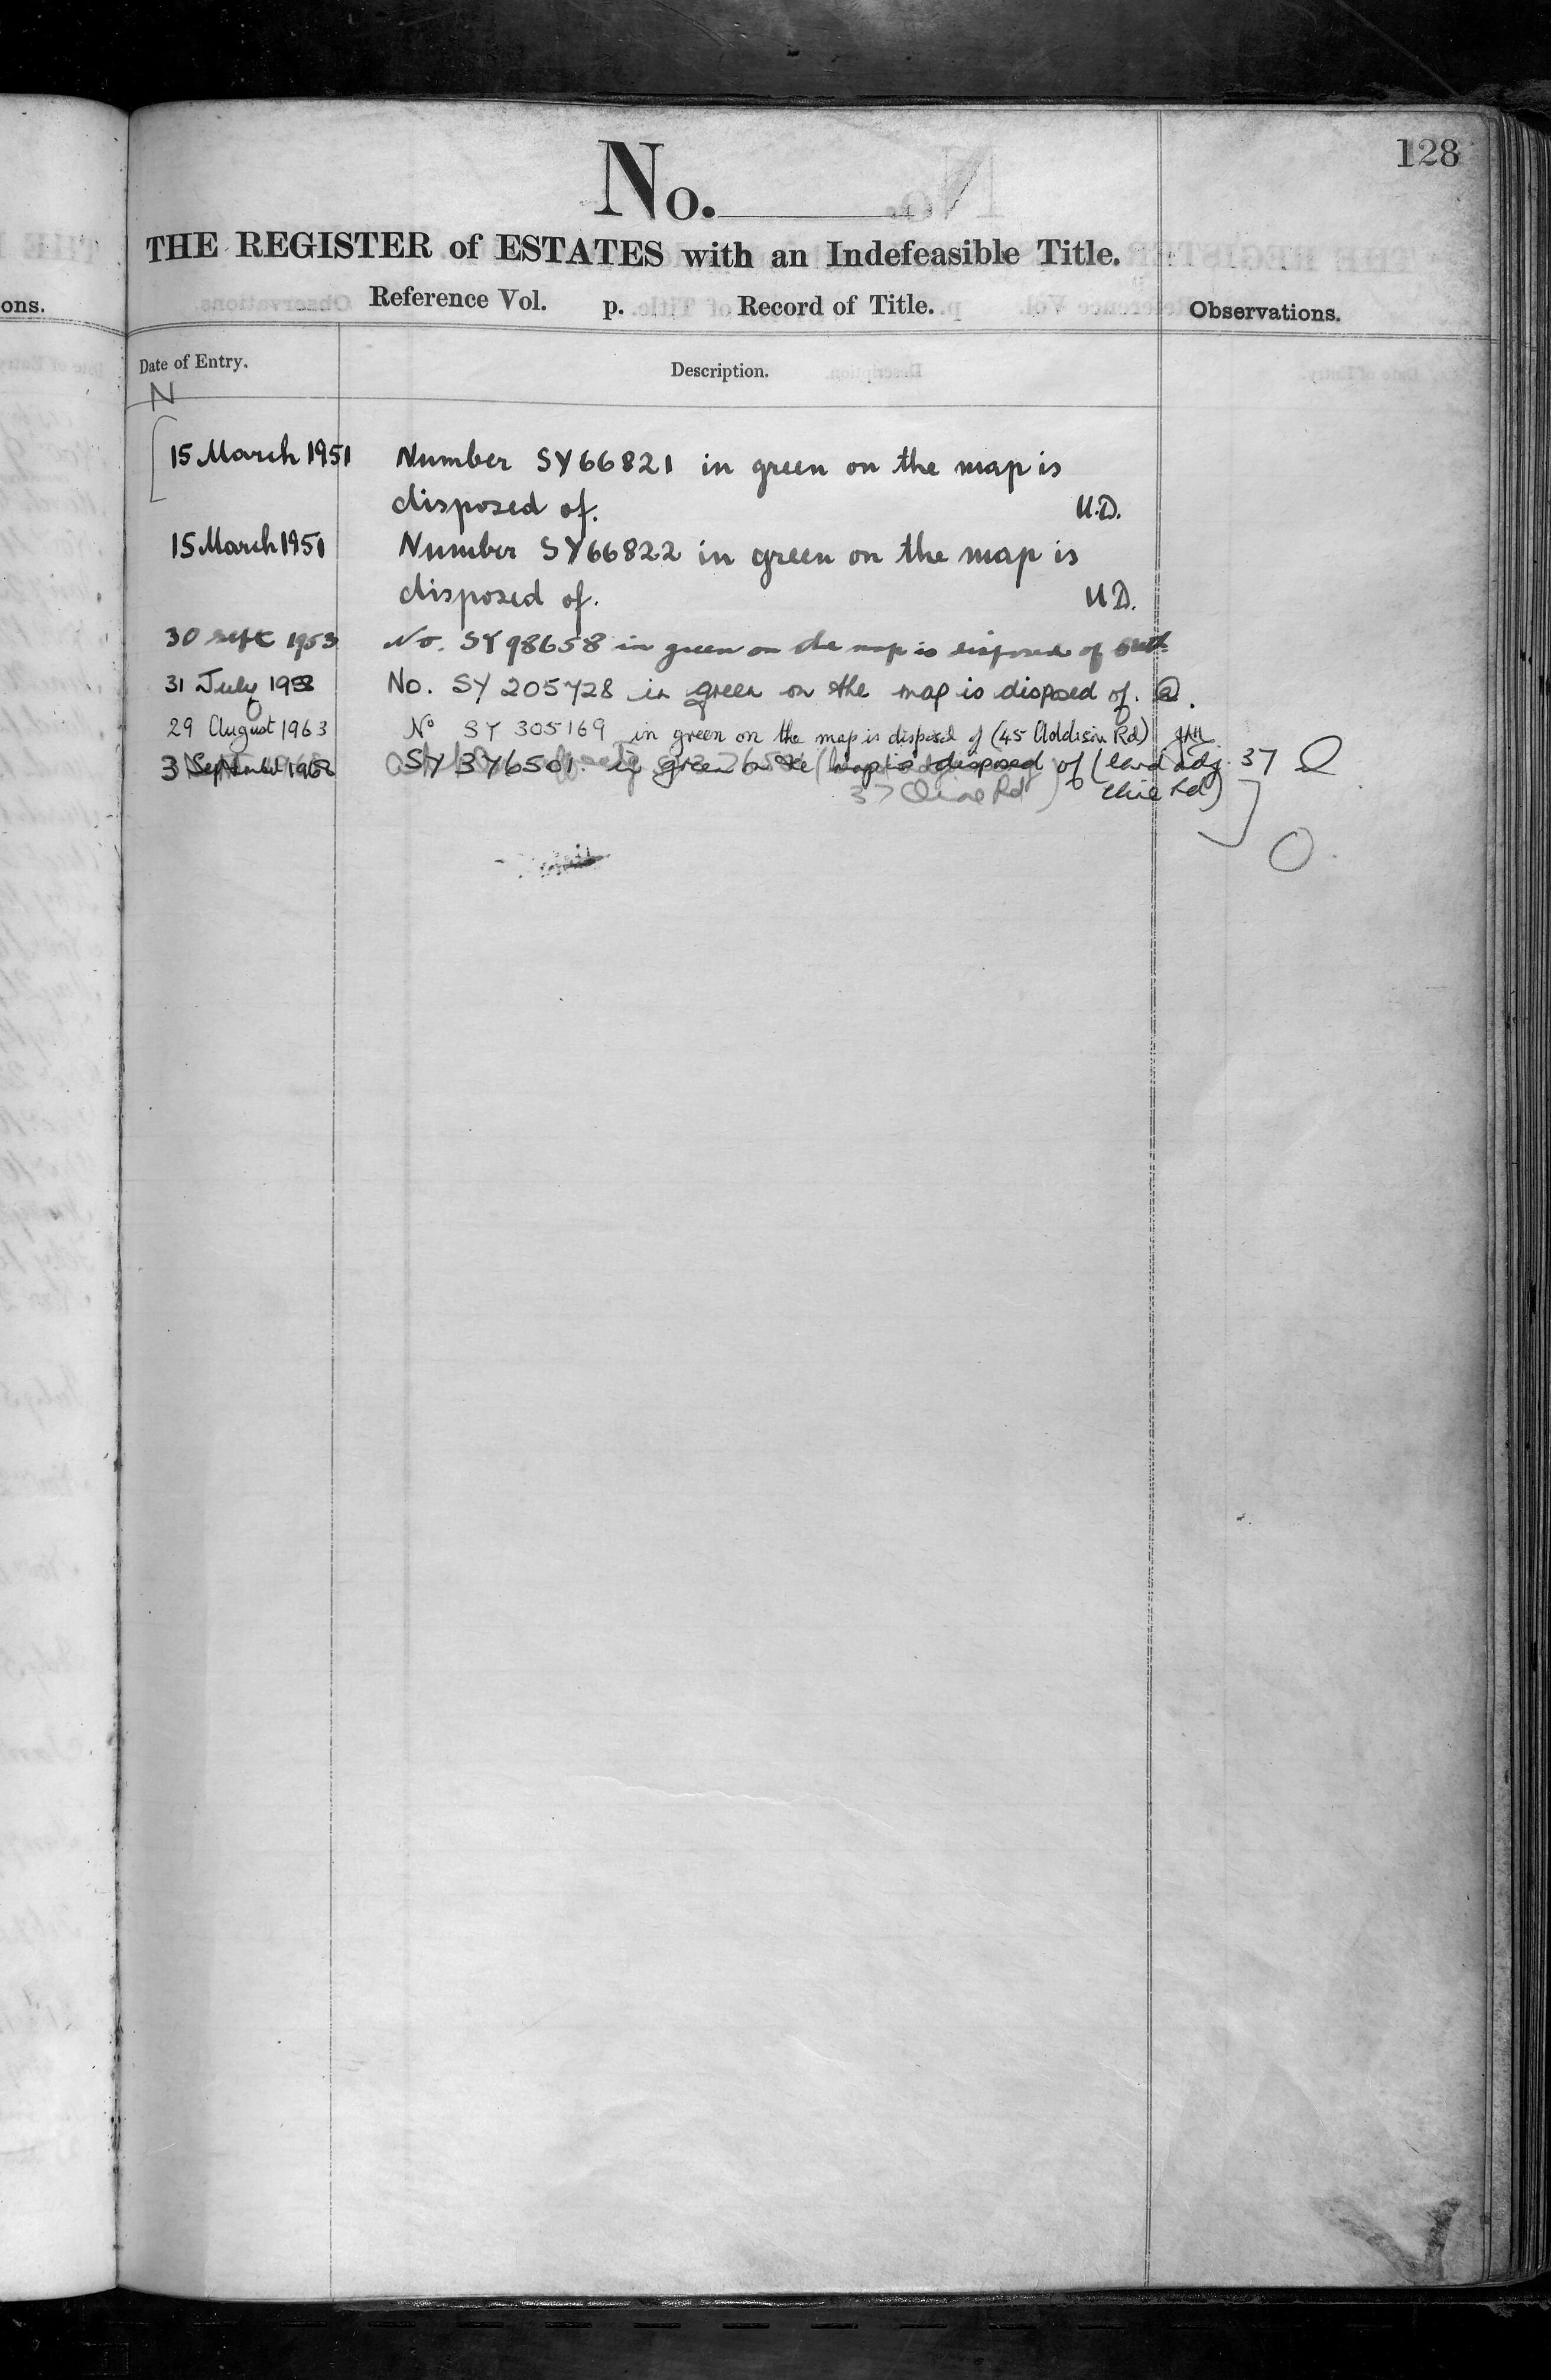 128
No.
THE REGISTER of ESTATES with an Indefeasible Title.
ons.
Reference Vol. p. Record of Title.
Observations.
Date of Entry.
Description.
N
15 March 1951 Number SY66821 in green on the map is
disposed of. U.D.
15 March 1951 Number SY66822 in green on the map is
disposed of. U.D.
30 Sept 1953 No. SY98658 in green on the map is disposed of
31 July 1958 No. SY 205728 in green on the map is disposed of.
29 August 1963 No SY 305169 in green on the map is disposed of (45 Addison Rd)
3 September 1968 SY 376501 in green on the map is disposed of (land adj. 37
37 Clive Rd) Clive Rd)